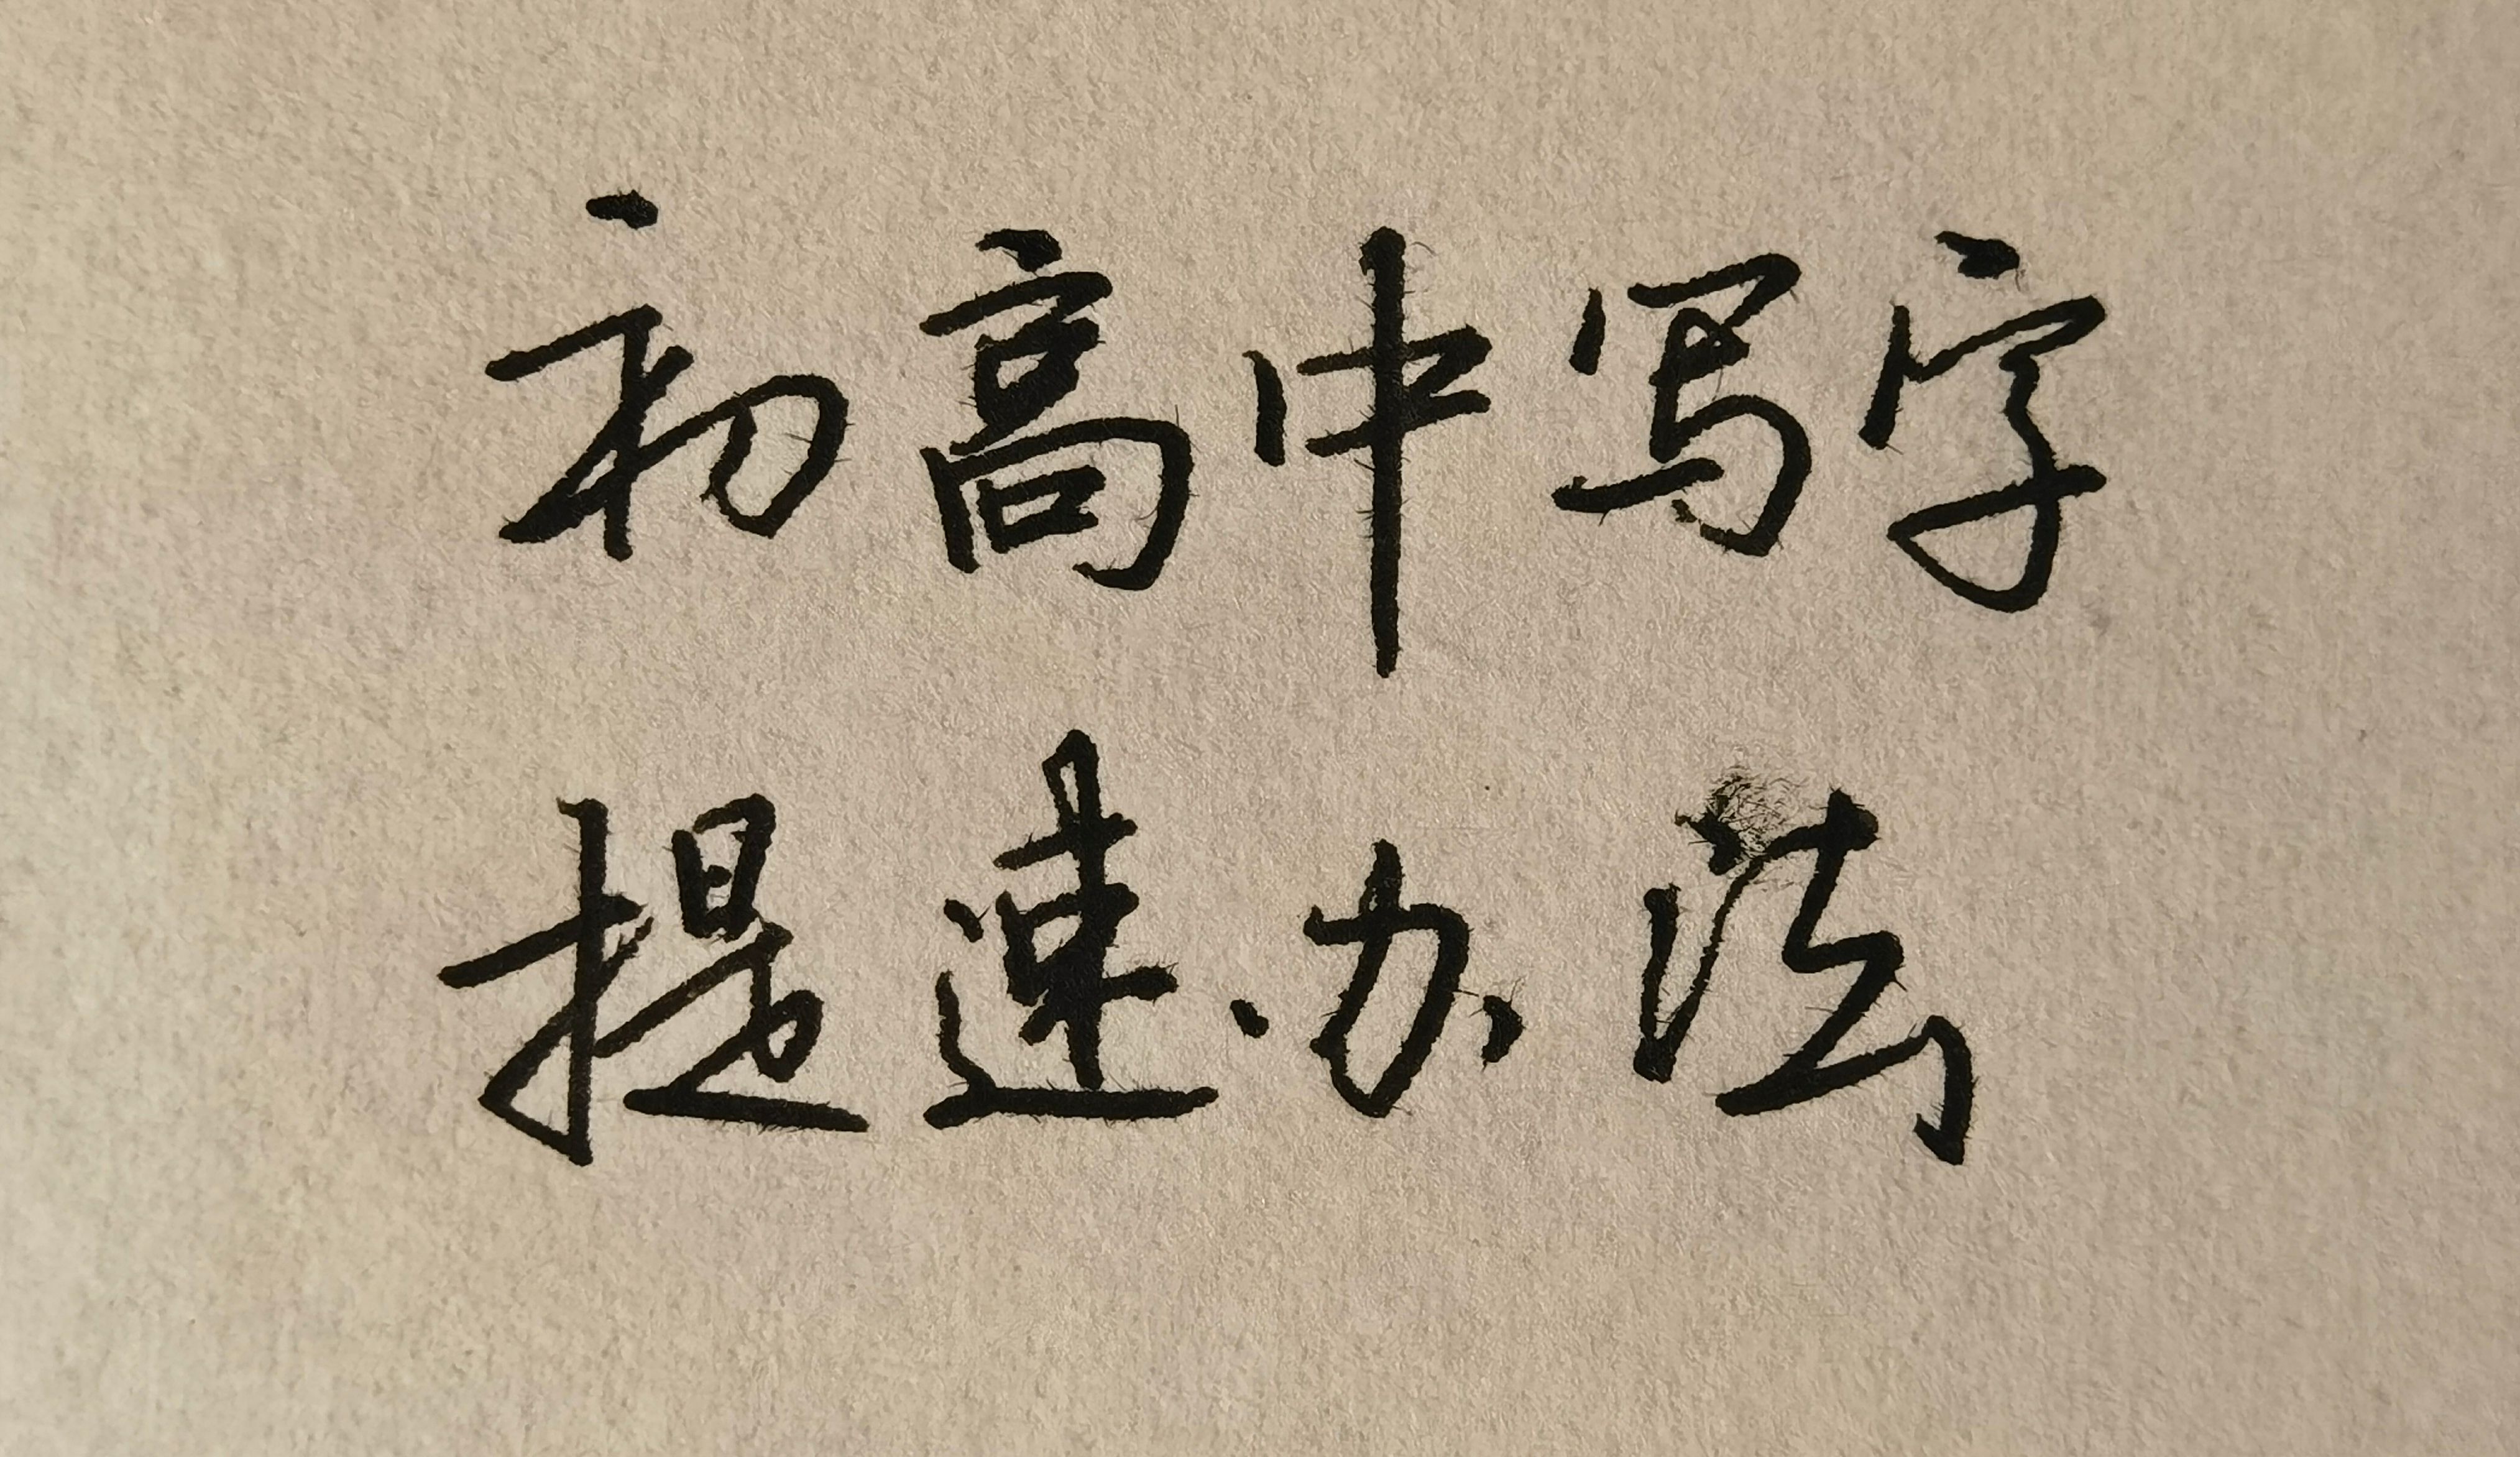 初高中写字
提速办法